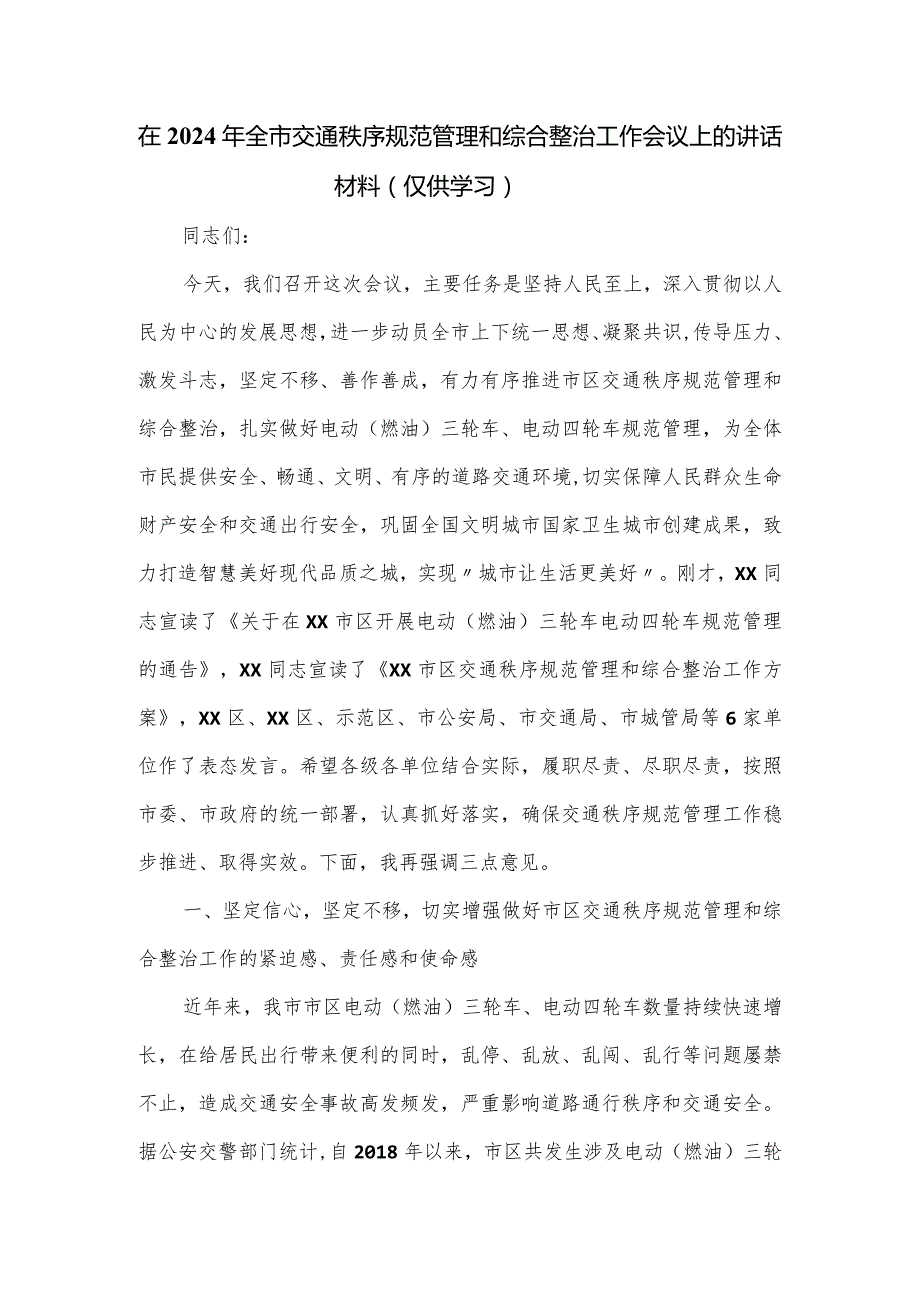 在 2024 年全市交通秩序规范管理和综合整治工作会议上的讲话
材料（仅供学习）
同志们：
今天，我们召开这次会议，主要任务是坚持人民至上，深入贯彻以人
民为中心的发展思想,进一步动员全市上下统一思想、凝聚共识,传导压力、
激发斗志，坚定不移、善作善成，有力有序推进市区交通秩序规范管理和
综合整治，扎实做好电动（燃油）三轮车、电动四轮车规范管理，为全体
市民提供安全、畅通、文明、有序的道路交通环境,切实保障人民群众生命
财产安全和交通出行安全，巩固全国文明城市国家卫生城市创建成果，致
力打造智慧美好现代品质之城，实现〃城市让生活更美好〃。刚才，XX 同
志宣读了《关于在 XX 市区开展电动（燃油）三轮车电动四轮车规范管理
的通告》，XX 同志宣读了《XX 市区交通秩序规范管理和综合整治工作方
案》，XX 区、XX 区、示范区、市公安局、市交通局、市城管局等 6 家单
位作了表态发言。希望各级各单位结合实际，履职尽责、尽职尽责，按照
市委、市政府的统一部署，认真抓好落实，确保交通秩序规范管理工作稳
步推进、取得实效。下面，我再强调三点意见。
一、坚定信心，坚定不移，切实增强做好市区交通秩序规范管理和综
合整治工作的紧迫感、责任感和使命感
近年来，我市市区电动（燃油）三轮车、电动四轮车数量持续快速增
长，在给居民出行带来便利的同时，乱停、乱放、乱闯、乱行等问题屡禁
不止，造成交通安全事故高发频发，严重影响道路通行秩序和交通安全。
据公安交警部门统计,自 2018 年以来，市区共发生涉及电动（燃油）三轮